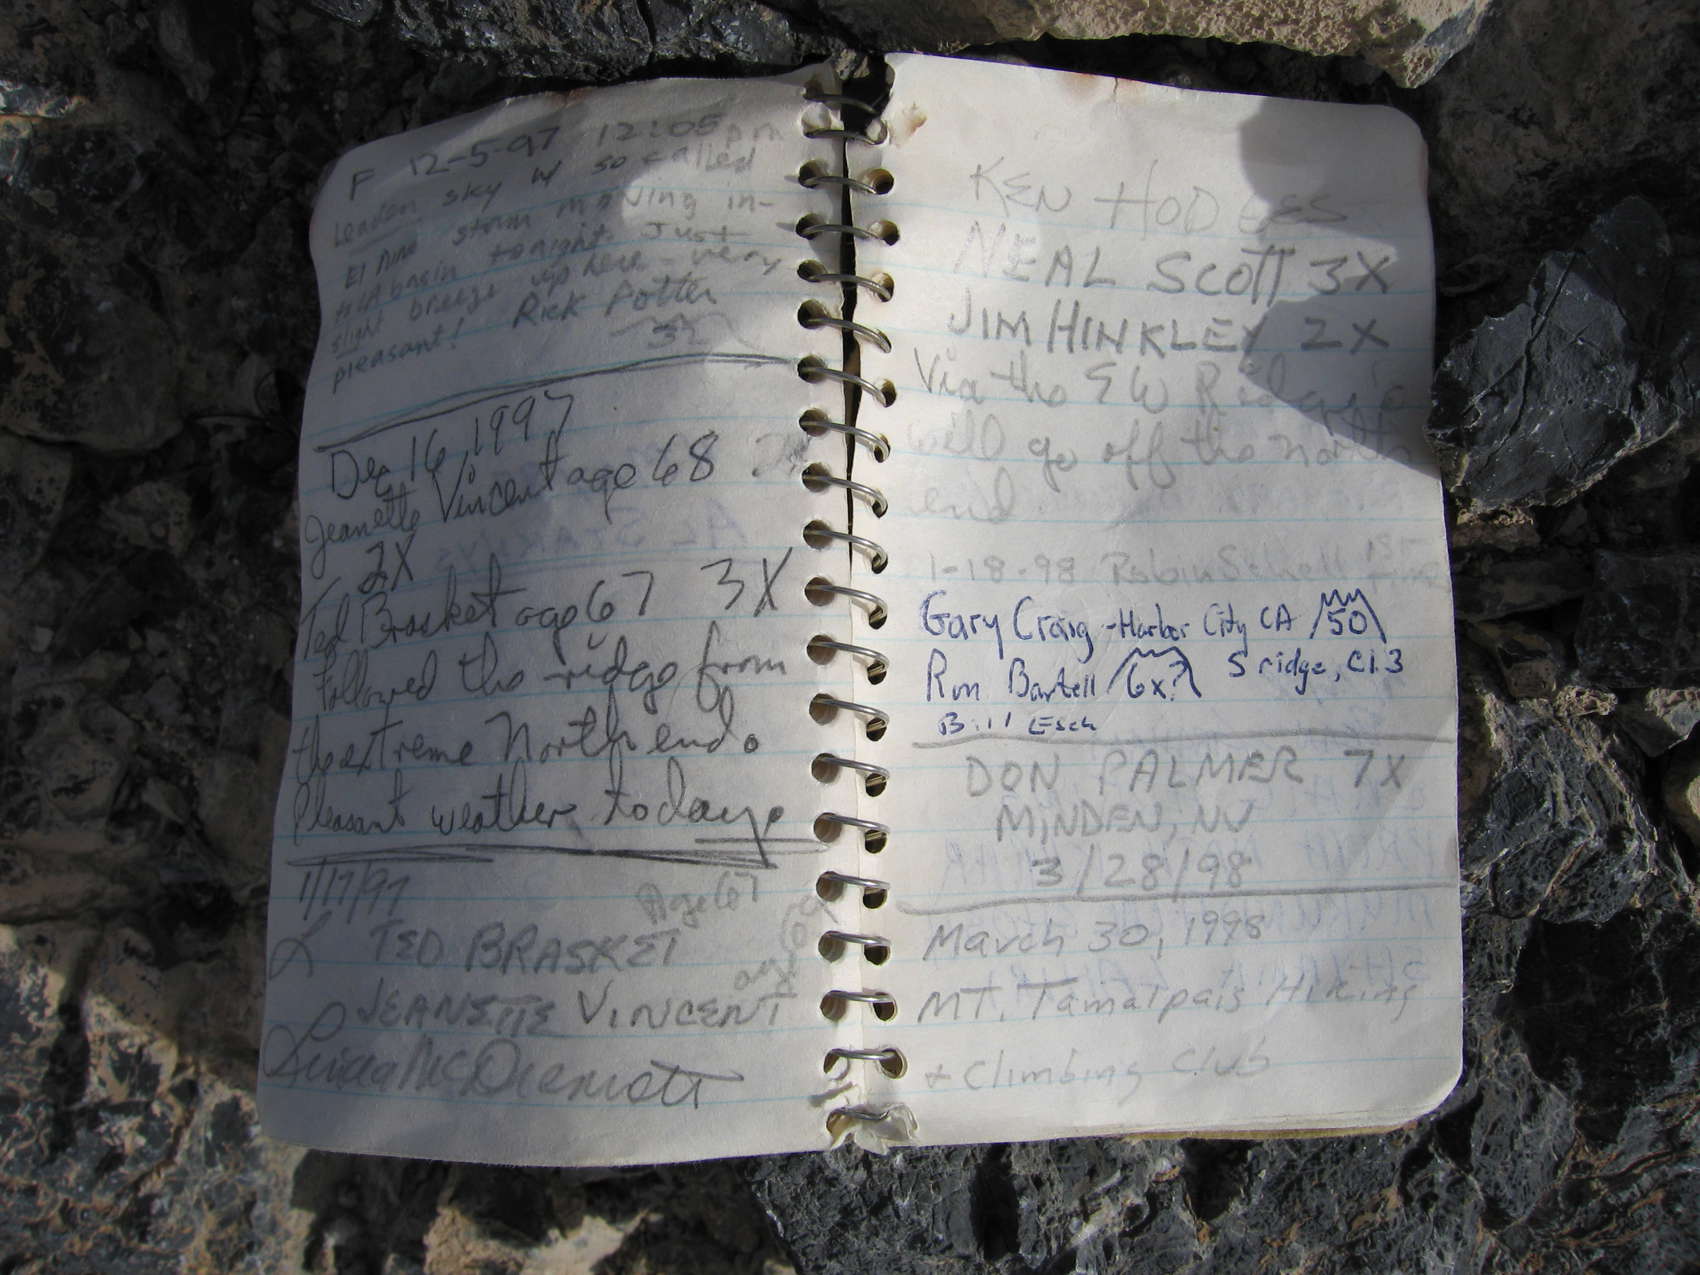 F 12-5-97 12:05 pm
Leaden sky w/ so called
El Nino storm moving in-
to LA basin tonight. Just
slight breeze up here - very
pleasant! Rick Potter
32
Dec 16, 1997
Jeanette Vincent age 68
2X
Ted Brasket age 67 3X
Followed the ridge from
the extreme North end.
Pleasant weather today.
1/17/97
Age 67
TED BRASKET
age
JEANETTE VINCENT
McDermott
KEN HODGES
NEAL SCOTT 3X
JIM HINKLEY 2X
Via the E W Ridge
will go off the north
end.
1-18-98 Robin Schell 1st
time
Gary Craig - Harbor City CA 50
Ron Bartell 6x? S ridge, cl.3
Bill Esch
DON PALMER 7X
MINDEN, NV
3/28/98
March 30, 1998
MT. Tamalpais Hiking
+ Climbing Club